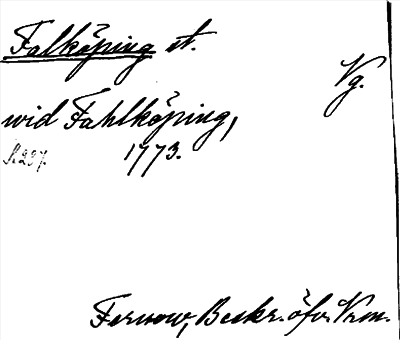 Falköping st.
Vg.
wid Fahlköping,
S. 237. 1773.
Fernow, Beskr. öfv. Vrm.